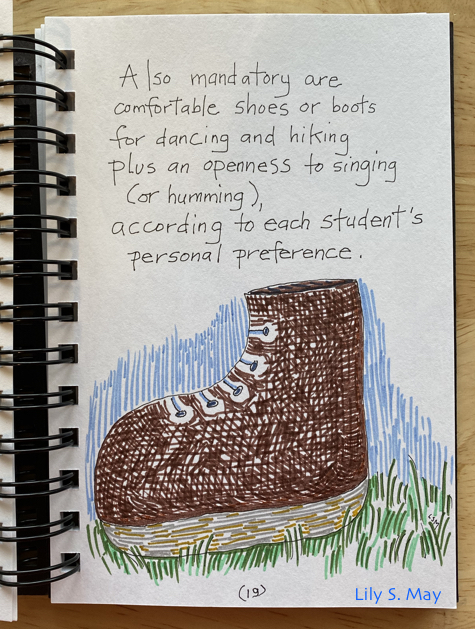 Also mandatory are
comfortable shoes or boots
for dancing and hiking
plus an openness to singing
(or humming),
according to each student's
personal preference.
(19)
Lily S. May